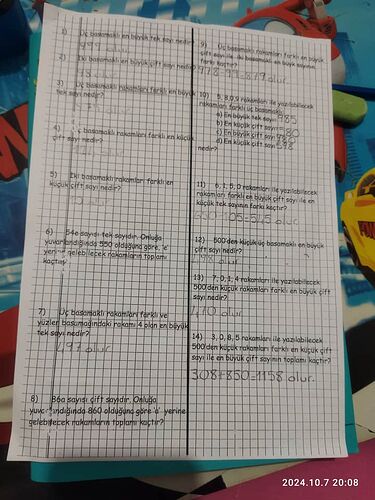 1) Üç basamaklı en büyük tek sayı nedir?
999 olur.
2) İki basamaklı en büyük çift sayı nedir?
98 olur.
3) Üç basamaklı rakamları farklı en büyük
tek sayı nedir?
olur.
4) Üç basamaklı rakamları farklı en küçük
çift sayı nedir?
5) İki basamaklı rakamları farklı en
küçük çift sayı nedir?
6) 54e sayısı tek sayıdır. Onluğa
yuvarlandığında 550 olduğuna göre, 'e'
yerine gelebilecek rakamların toplamı
kaçtır?
7) Üç basamaklı rakamları farklı ve
yüzler basamağındaki rakamı 4 olan en büyük
tek sayı nedir?
497 olur.
8) 86a sayısı çift sayıdır. Onluğa
yuvarlandığında 860 olduğuna göre 'a' yerine
gelebilecek rakamların toplamı kaçtır?
9) Üç basamaklı rakamları farklı en büyük
çift sayı ile iki basamaklı en büyük sayının
farkı kaçtır?
978-99=879 olur.
10) 5, 8, 0, 9 rakamları ile yazılabilecek
rakamları farklı üç basamaklı
a) En büyük tek sayı 985
b) En küçük çift sayı
c) En büyük çift sayı 980
d) En küçük çift sayı 598
nedir?
11) 6, 1, 5, 0 rakamları ile yazılabilecek
rakamları farklı en büyük çift sayı ile en
küçük tek sayının farkı kaçtır?
650-105=545 olur.
12) 500'den küçük üç basamaklı en büyük
çift sayı nedir?
olur.
13) 7, 0, 1, 4 rakamları ile yazılabilecek
500'den küçük rakamları farklı en büyük çift
sayı nedir?
410 olur.
14) 3, 0, 8, 5 rakamları ile yazılabilecek
500'den küçük rakamları farklı en küçük çift
sayı ile en büyük çift sayının toplamı kaçtır?
308+850=1158 olur.
2024.10.7 20:08